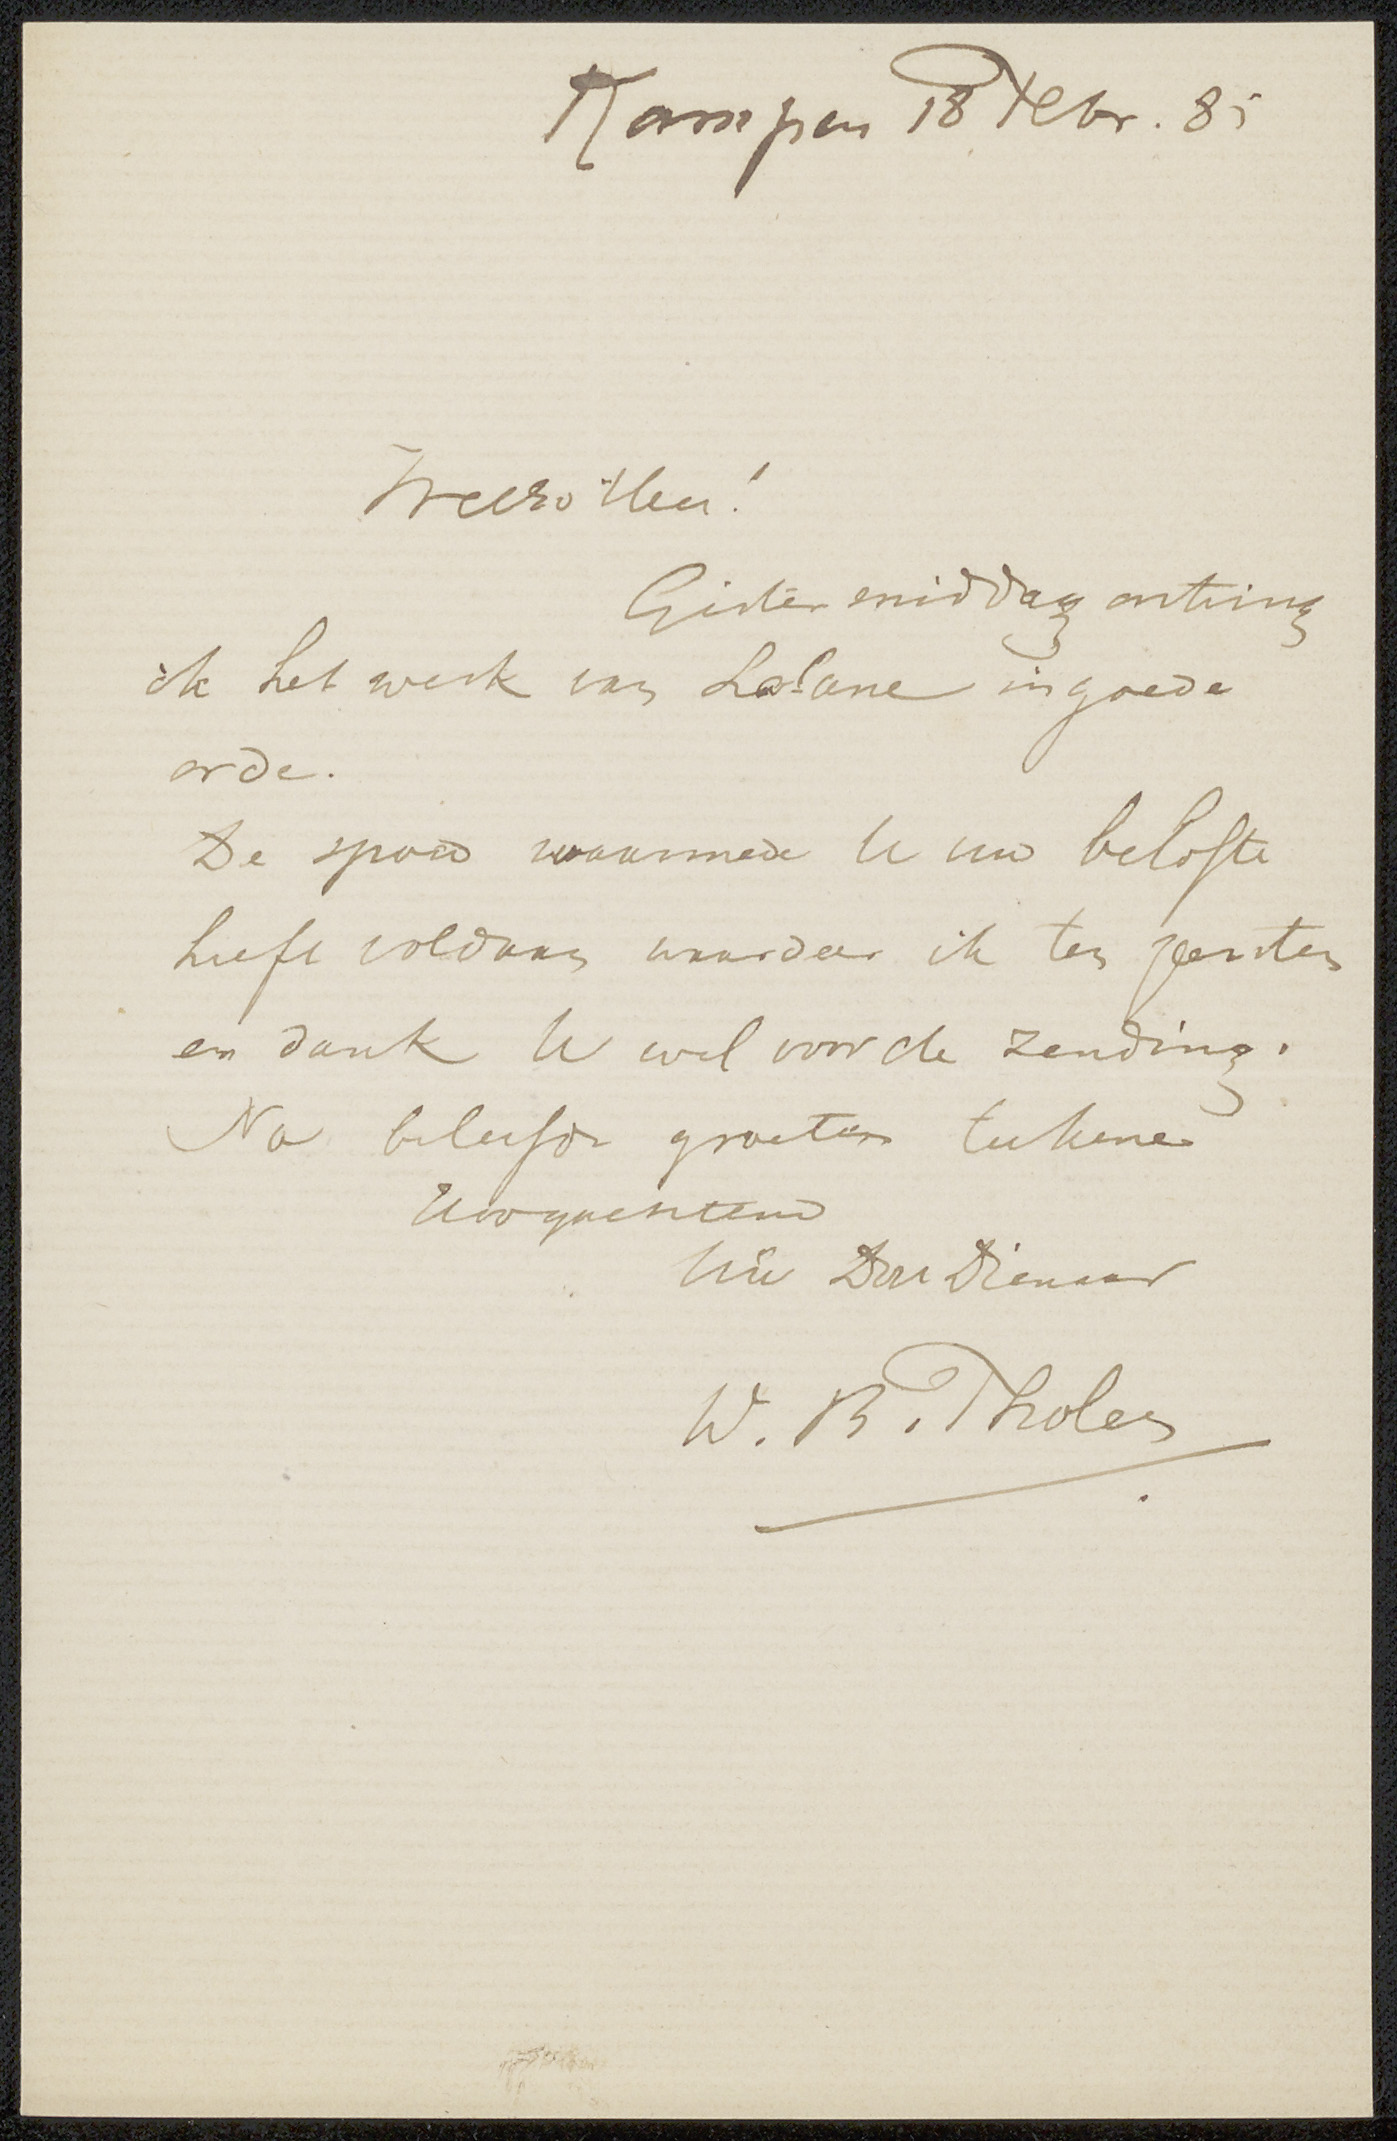 Kampen 18 Febr. 85
WelEd Heer!
Gister middag ontving
ik het werk van Lalane in goede
orde.
De spoed waarmede U uw belofte
heeft voldaan waardeer ik ten zeersten
en dank U wel voor de zending.
Na beleefde groeten teekene
Hoogachtend
Uw Dw Dienaar
W. B. Tholen